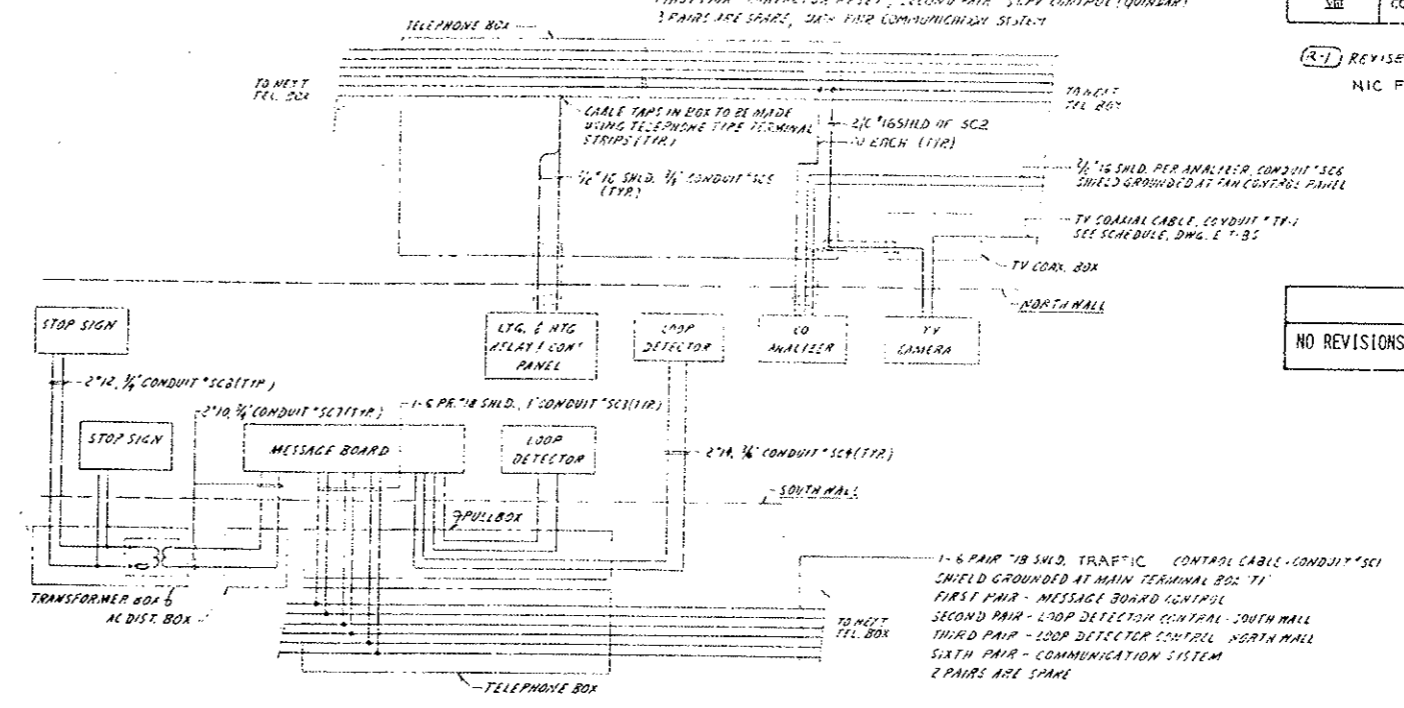 3 PAIRS ARE SPARE, 
PAIR COMMUNICATION SYSTEM
TELEPHONE BOX
VIII
CO
(R-1) REVISE
NIC F
TO NEXT
TEL. BOX
TO NEXT
TEL. BOX
CABLE TAPS IN BOX TO BE MADE
USING TELEPHONE TYPE TERMINAL
STRIPS (TYP.)
2/C #16 SHLD OF SC2
EACH (TYP.)
#16 SHLD. 3/4" CONDUIT #SC5
(TYP.)
2/C #16 SHLD. PER ANALIZER, CONDUIT #SC6
SHIELD GROUNDED AT FAN CONTROL PANEL
TV COAXIAL CABLE, CONDUIT #TV-1
SEE SCHEDULE, DWG. E
TV COAX. BOX
NORTH WALL
STOP SIGN
LTG. & HTG
RELAY & CONT
PANEL
LOOP
DETECTOR
CO
ANALIZER
TV
CAMERA
NO REVISIONS
2#12, 3/4" CONDUIT #SC8 (TYP.)
2#10, 3/4" CONDUIT #SC7 (TYP.)
1-6 PR. #18 SHLD., 1" CONDUIT #SC3 (TYP.)
STOP SIGN
MESSAGE BOARD
LOOP
DETECTOR
2#14, 3/4" CONDUIT #SC4 (TYP.)
SOUTH WALL
PULLBOX
TRANSFORMER BOX
AC DIST. BOX
TO NEXT
TEL. BOX
1-6 PAIR #18 SHLD. TRAFFIC CONTROL CABLE - CONDUIT #SC1
SHIELD GROUNDED AT MAIN TERMINAL BOX "T1"
FIRST PAIR - MESSAGE BOARD CONTROL
SECOND PAIR - LOOP DETECTOR CONTROL - SOUTH WALL
THIRD PAIR - LOOP DETECTOR CONTROL NORTH WALL
SIXTH PAIR - COMMUNICATION SYSTEM
2 PAIRS ARE SPARE
TELEPHONE BOX